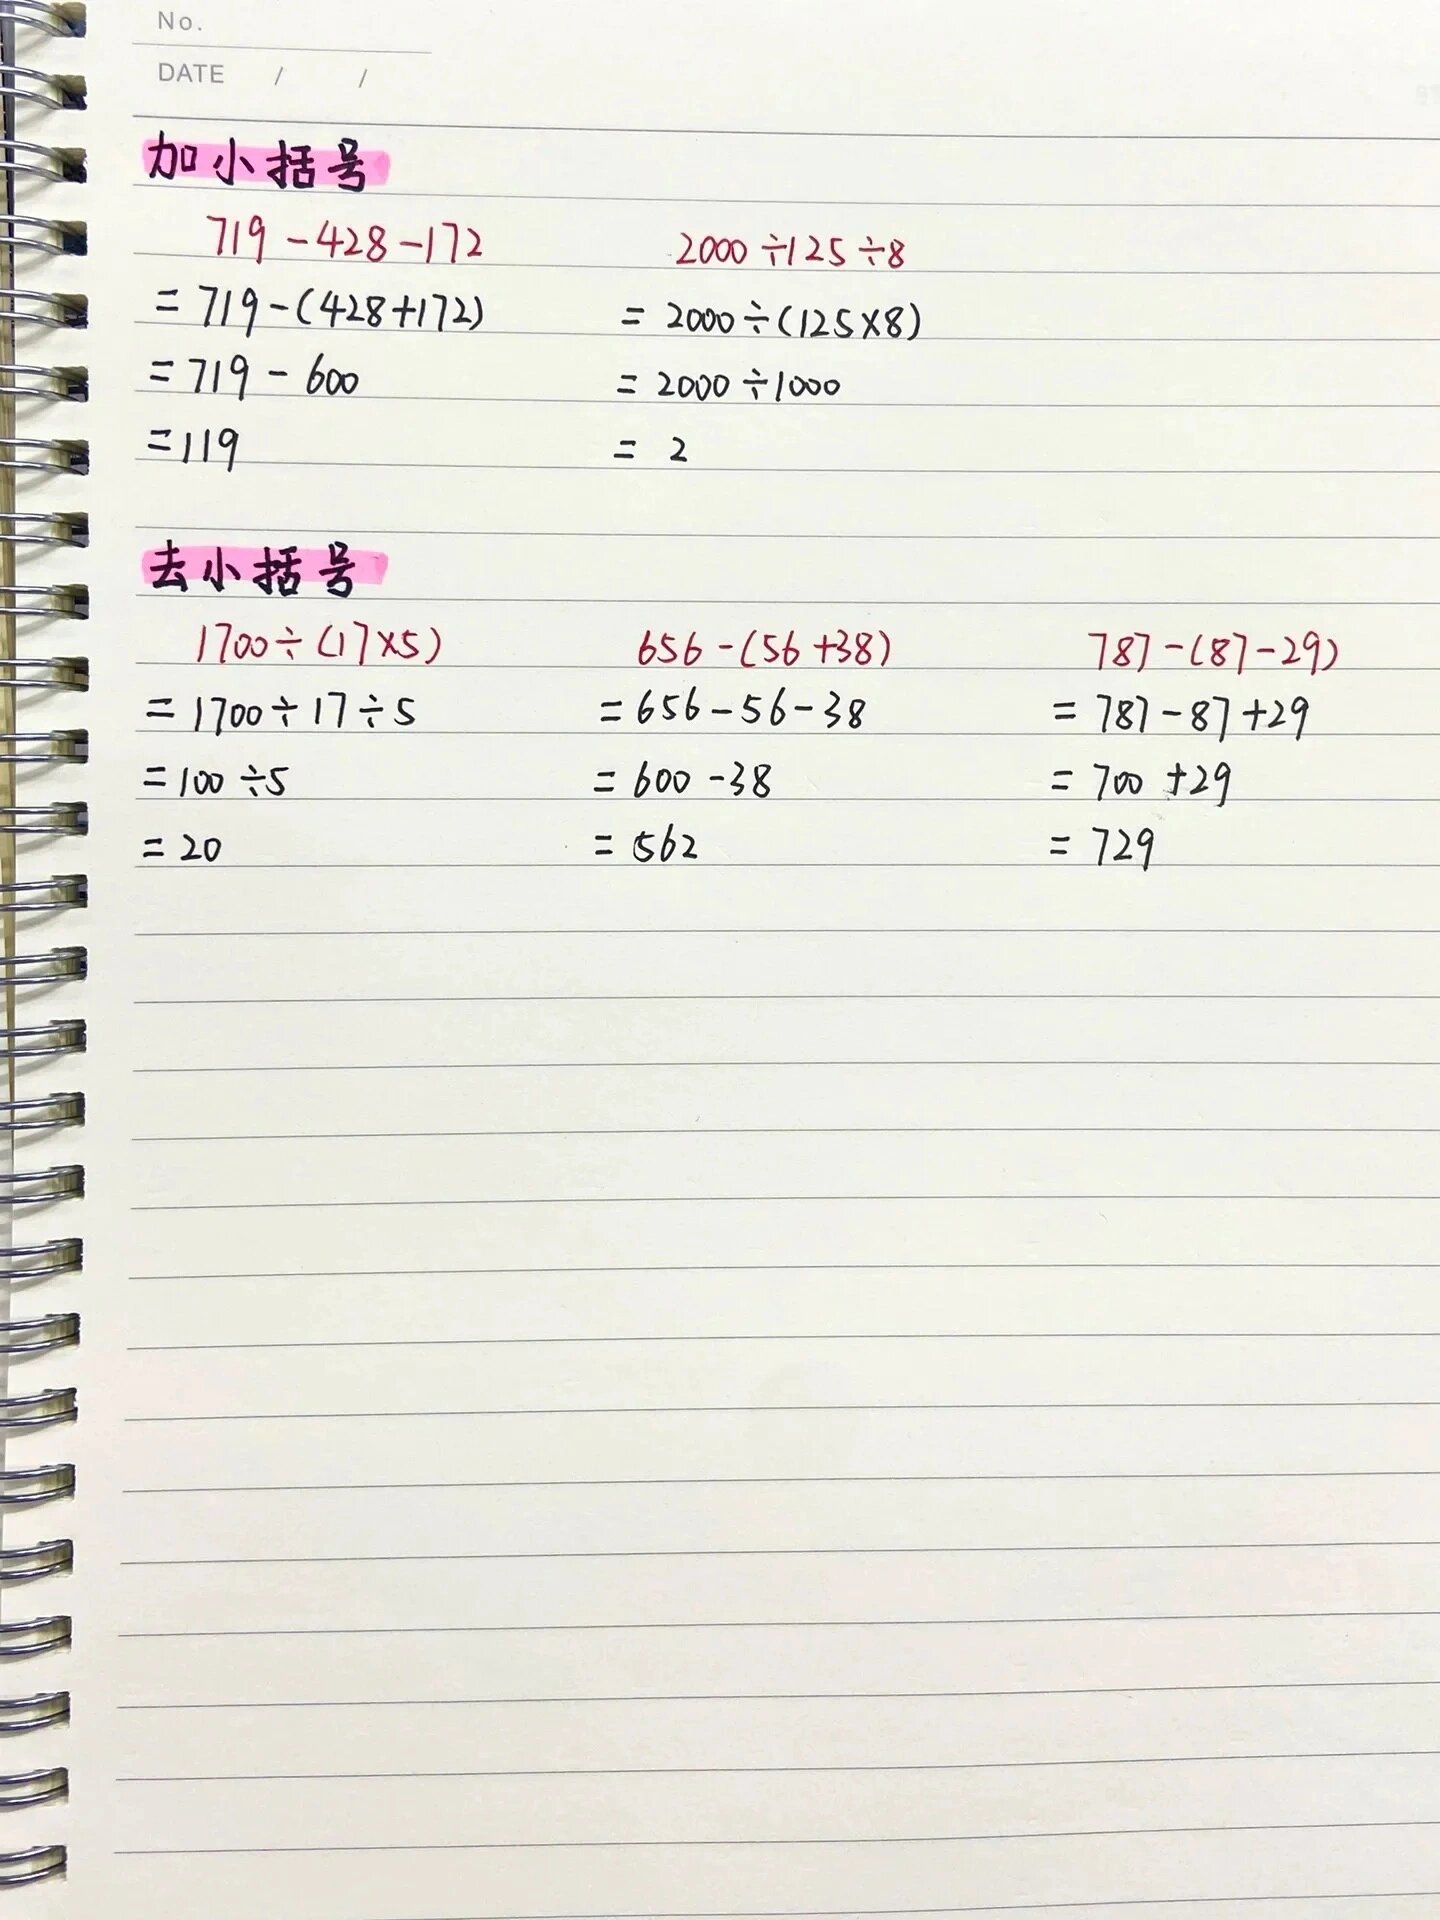 No.
DATE / /
加小括号
719-428-172 2000÷125÷8
=719-(428+172) =2000÷(125×8)
=719-600 =2000÷1000
=119 =2
去小括号
1700÷(17×5) 656-(56+38) 787-(87-29)
=1700÷17÷5 =656-56-38 =787-87+29
=100÷5 =600-38 =700+29
=20 =562 =729